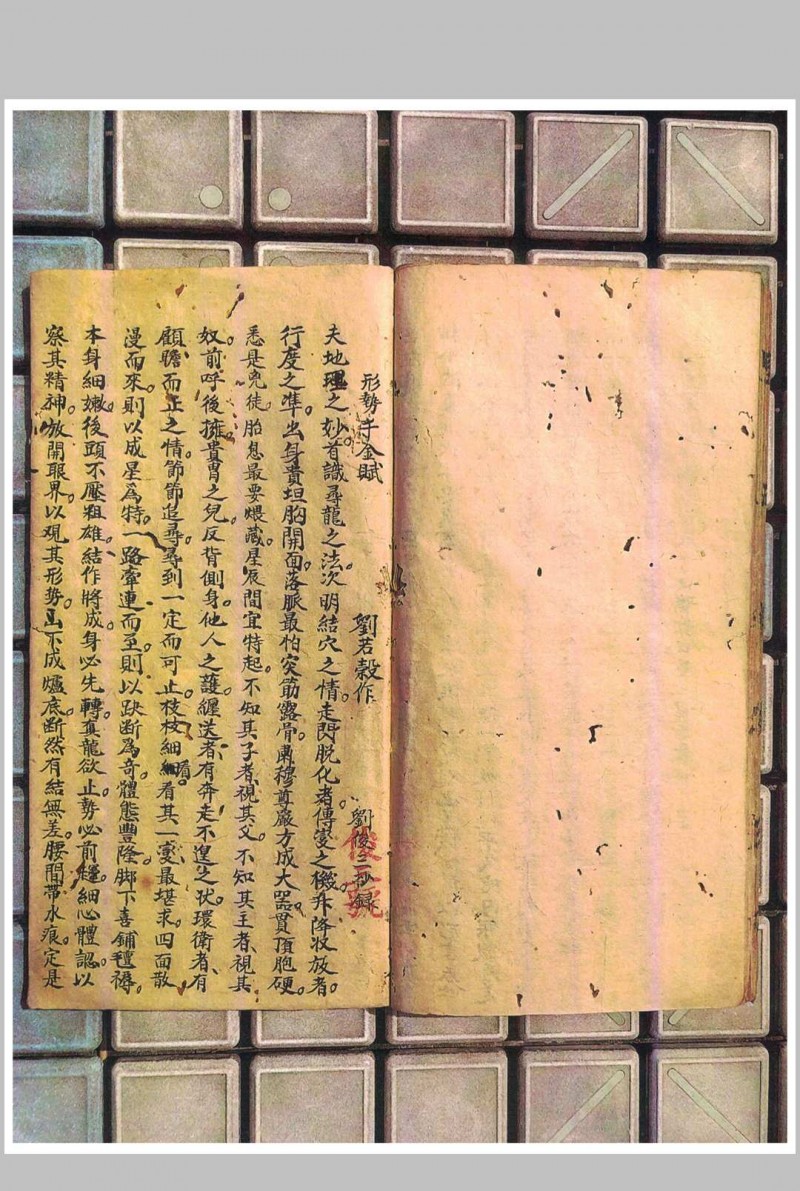 形勢千金賦 劉若穀作 劉俊三抄録
俊三號
夫地理之妙。首識尋龍之法。次明結穴之情。走閃脱化者。傳變之機。升降收放者。
行度之準。出身貴坦胸開面。落脈最怕突筋露骨。肅穆尊嚴。方成大器。貫頂胞硬。
悉是兇徒。胎息最要煨藏。星辰間宜特起。不知其子者、視其父。不知其主者、視其
奴。前呼後擁。貴胄之兒。反背側身。他人之護。纏送者、有奔走不遑之狀。環衛者、有
顧瞻而正之情。節節追尋。尋到一定而可止。枝枝細看。看其一變、最堪求。四面散
漫而來。則以成星爲特。一路牽連而至。則以趺断爲奇。體態豐隆。脚下喜鋪氊褥。
本身細嫩。後頭不壓粗雄。結作將成。身必先轉。真龍欲止。勢必前趨。細心體認。以
察其精神。放開眼界。以观其形勢。山不成爐底。断然有結無差。腰間帶水痕。定是